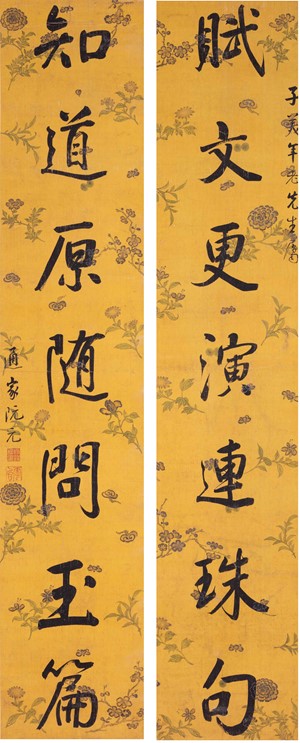 賦文更演連珠句
子美年老先生屬
知道原随問玉篇
通家阮元